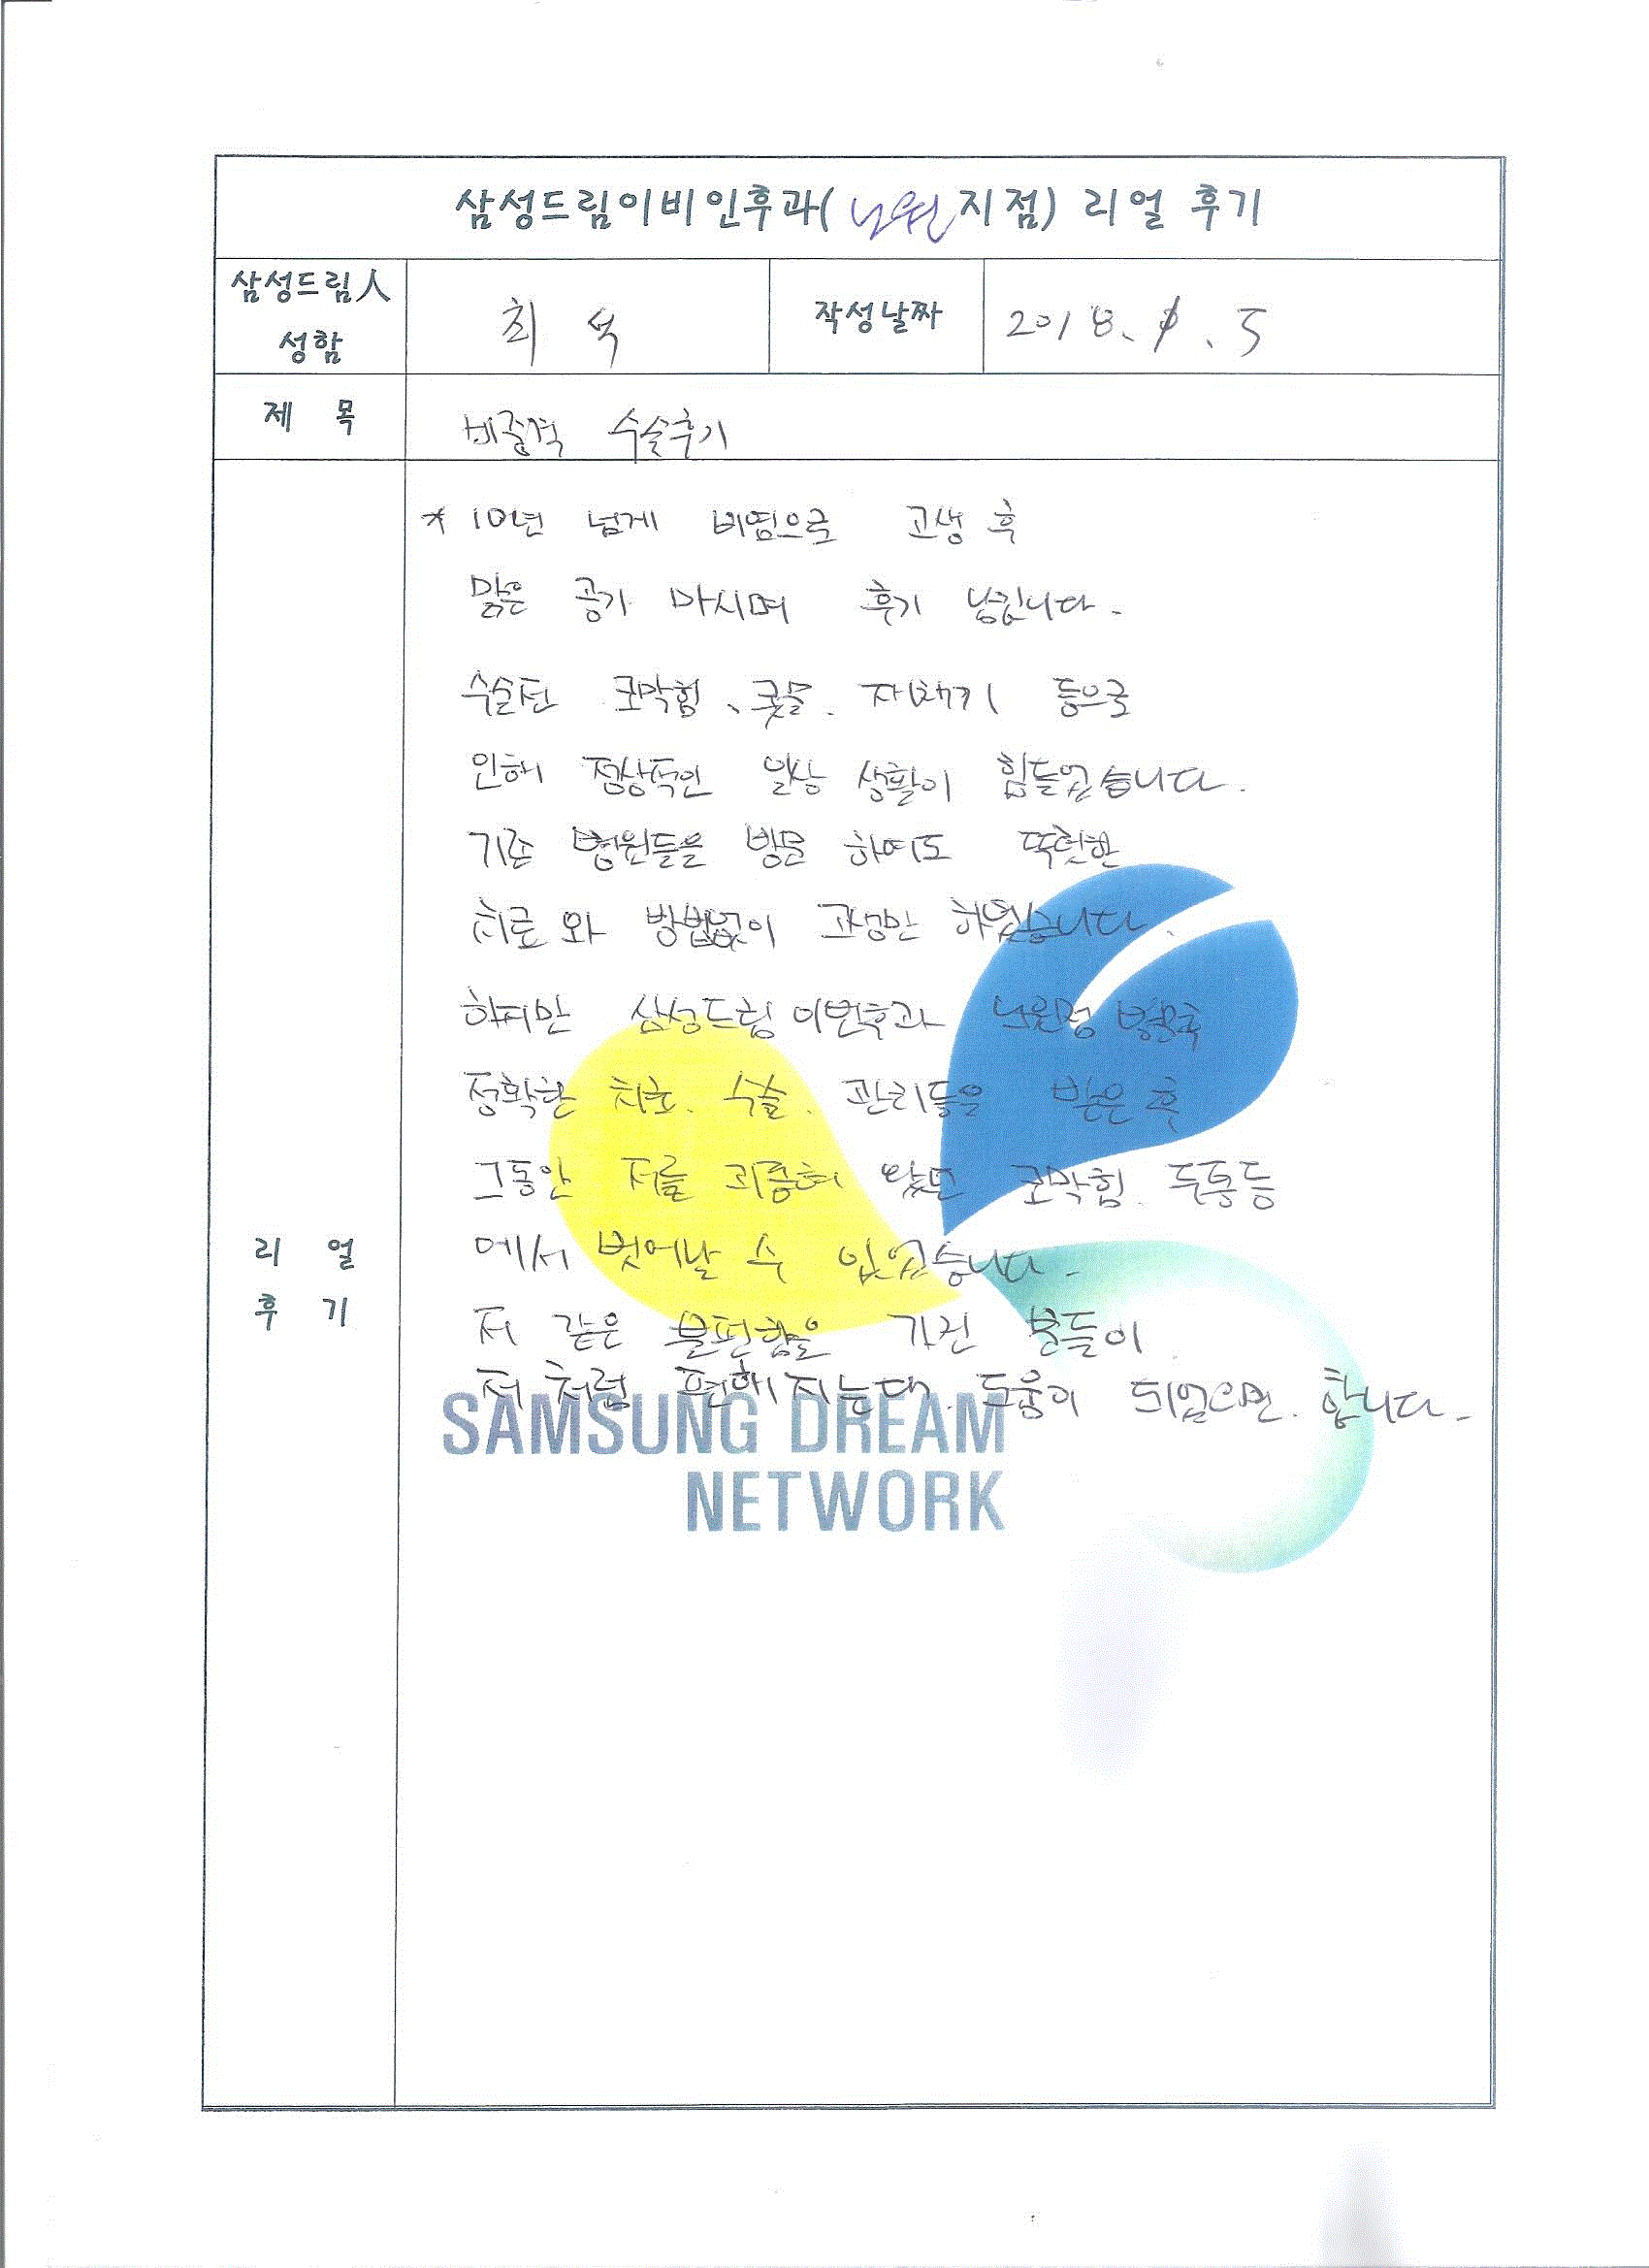 삼성드림이비인후과( 노원 지점) 리얼 후기
삼성드림人
성함
최 석
작성날짜
2018. 1. 5
제 목
비중격 수술후기
* 10년 넘게 비염으로 고생 후
맑은 공기 마시며 후기 남깁니다.
수술전 코막힘, 콧물. 재채기 등으로
인해 정상적인 일상 생활이 힘들었습니다.
기존 병원들을 방문 하여도 뚜렷한
치료 와 방법없이 고생만 하였습니다.
하지만 삼성드림 이빈후과 노원점 방문후
정확한 치료. 수술. 관리들을 받은 후
그동안 저를 괴롭혀 왔던 코막힘. 두통등
에서 벗어날 수 있었습니다.
저 같은 불편함을 가진 분들이
저 처럼 편해 지는데 도움이 되었으면 합니다.
리 얼
후 기
SAMSUNG DREAM
NETWORK